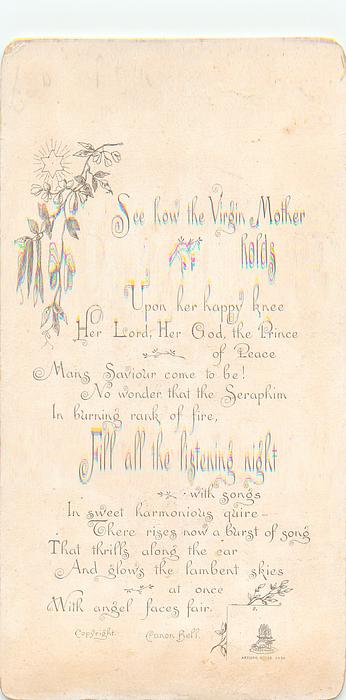 See how the Virgin Mother
holds
Upon her happy knee
Her Lord, Her God, the Prince
of Peace
Mans Saviour come to be!
No wonder that the Seraphim
In burning rank of fire,
Fill all the listening night
with songs
In sweet harmonious quire-
There rises now a burst of song
That thrills along the ear
And glows the lambent skies
at once
With angel faces fair.
Copyright. Canon Bell.